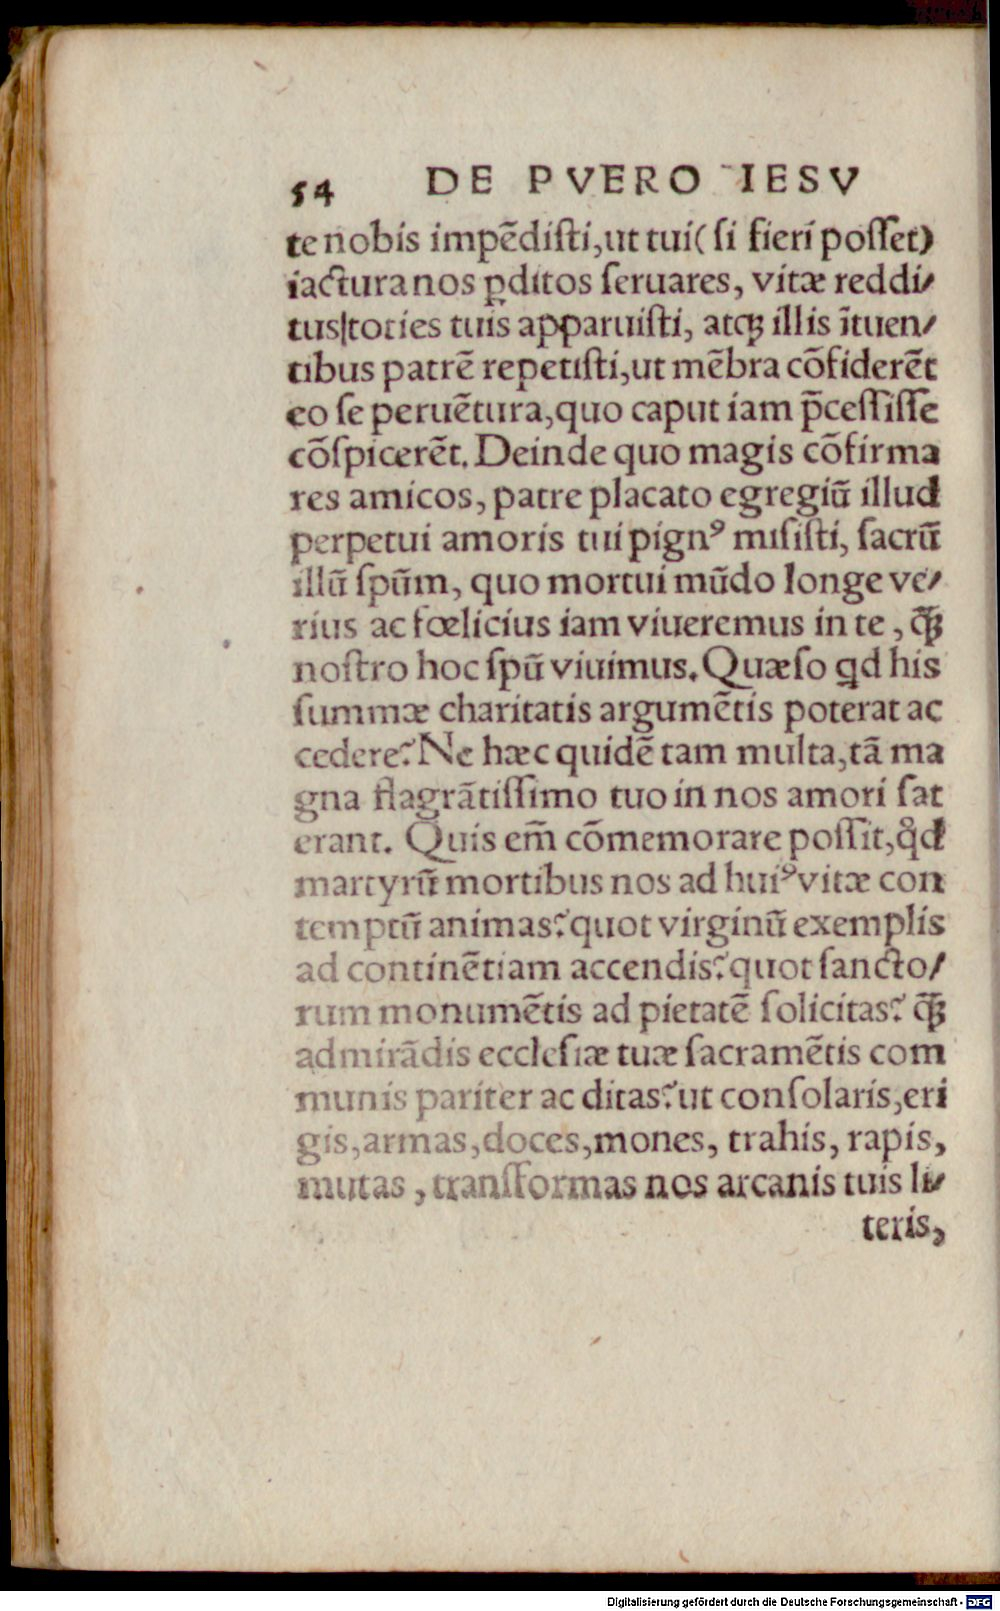 54 DE PVERO IESV
te nobis impēdiſti,ut tui(ſi fieri poſſet)
iacturanos ꝑditos ſeruares, vitæ reddi/
tus|toties tuis apparuiſti, atqꝫ illis ītuen/
tibus patrē repetiſti,ut mēbra cōfiderēt
eo ſe peruētura,quo caput iam p̄ceſſiſſe
cōſpicerēt. Deinde quo magis cōfirma
res amicos, patre placato egregiū illud
perpetui amoris tui pignꝰ miſiſti, ſacrū
illū ſpūm, quo mortui mūdo longe ve/
rius ac fœlicius iam viueremus in te , ꝙ̄ꝫ
noſtro hoc ſpū viuimus. Quæſo ꝗd his
ſummæ charitatis argumētis poterat ac
cedere? Ne hæc quidē tam multa,tā ma
gna flagrātiſſimo tuo in nos amori ſat
erant. Quis em̄ cōmemorare poſſit,qͦd
martyrū mortibus nos ad huiꝰ vitæ con
temptū animas? quot virginū exemplis
ad continētiam accendis? quot ſancto/
rum monumētis ad pietatē ſolicitas? ꝙ̄ꝫ
admirādis eccleſiæ tuæ ſacramētis com
munis pariter ac ditas? ut conſolaris,eri
gis,armas,doces,mones, trahis, rapis,
mutas , tranſformas nos arcanis tuis li/
teris,
Digitalisierung gefördert durch die Deutsche Forschungsgemeinschaft - DFG